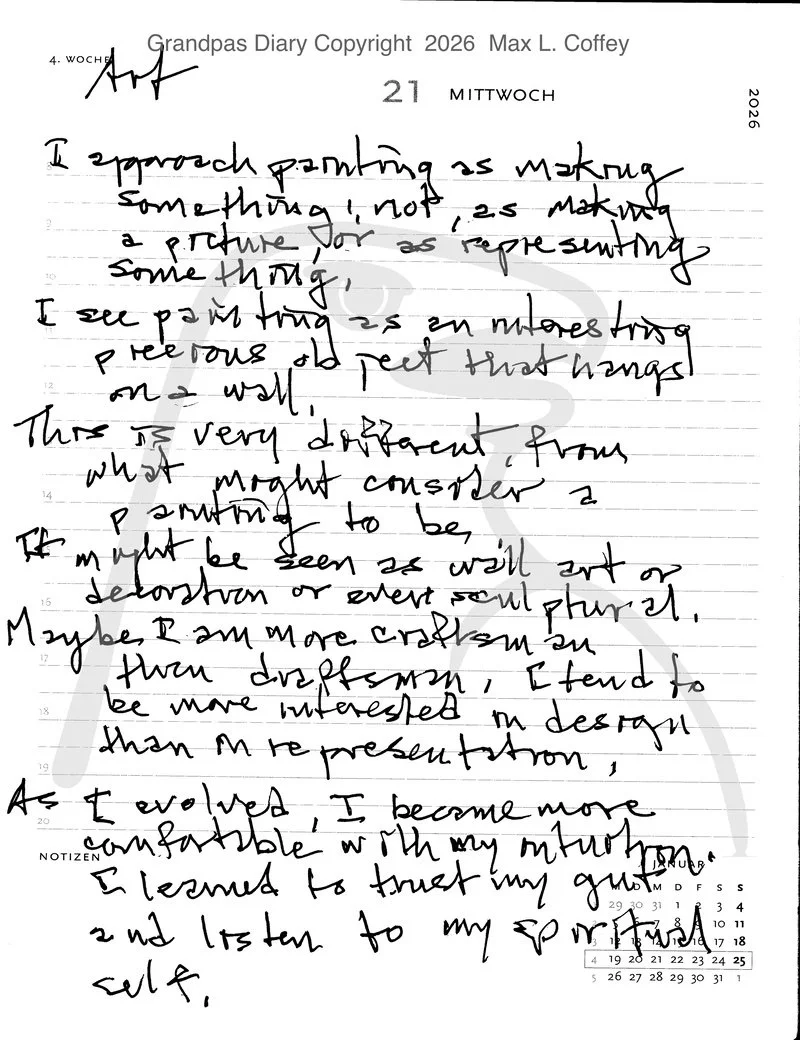 Grandpas Diary Copyright 2026 Max L. Coffey
4. WOCHE
Art
21 MITTWOCH
2026
I approach painting as making
something, not, as making
a picture, or as representing
something.
I see painting as an interesting
precious object that hangs
on a wall.
This is very different, from
what might consider a
painting to be,
It might be seen as wall art or
decoration or even sculptural.
Maybe I am more craftsman
then draftsman, I tend to
be more interested in design
than in representation,
As I evolved, I become more
comfortable with my intuition.
I learned to trust my gut
and listen to my spiritual
self,
9
10
12
14
15
17
18
19
20
NOTIZEN
JANUAR
M D M D F S S
29 30 31 1 2 3 4
5 6 7 8 9 10 11
3 12 13 14 15 16 17 18
4 19 20 21 22 23 24 25
5 26 27 28 29 30 31 1